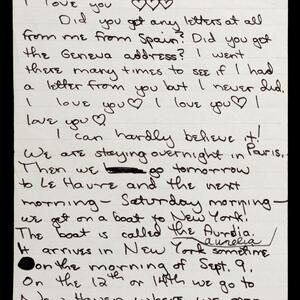 I love you ♡♡♡
Did you get any letters at all
from me from Spain? Did you get
the Geneva address? I went
there many times to see if I had
a letter from you but I never did.
I love you♡ I love you♡ I
love you♡
I can hardly believe it!
We are staying overnight in Paris.
Then we go tomorrow
to Le Havre and the next
morning - Saturday morning -
we get on a boat to New York.
The boat is called the Aurelia.
aurelia
It arrives in New York sometime
on the morning of Sept. 9.
On the 12th or 14th we go to